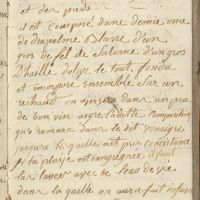 et des pieds
il est composé d'une demie once
de diapalme et dans d'un
gros de sel de Saturne d'un gros
d'huille dolive le tout fondu
et incorporé ensemble sur un
rechaud on versera dans un peu
de bon vin aigre la ditte composition
qui remuée dans le dit vinaigre
jusqu'a ce quelle ait pris consistance
si la playe est cangrenée il faut
laver avec de l'eau de vie
dans la quelle on aura fait infuser